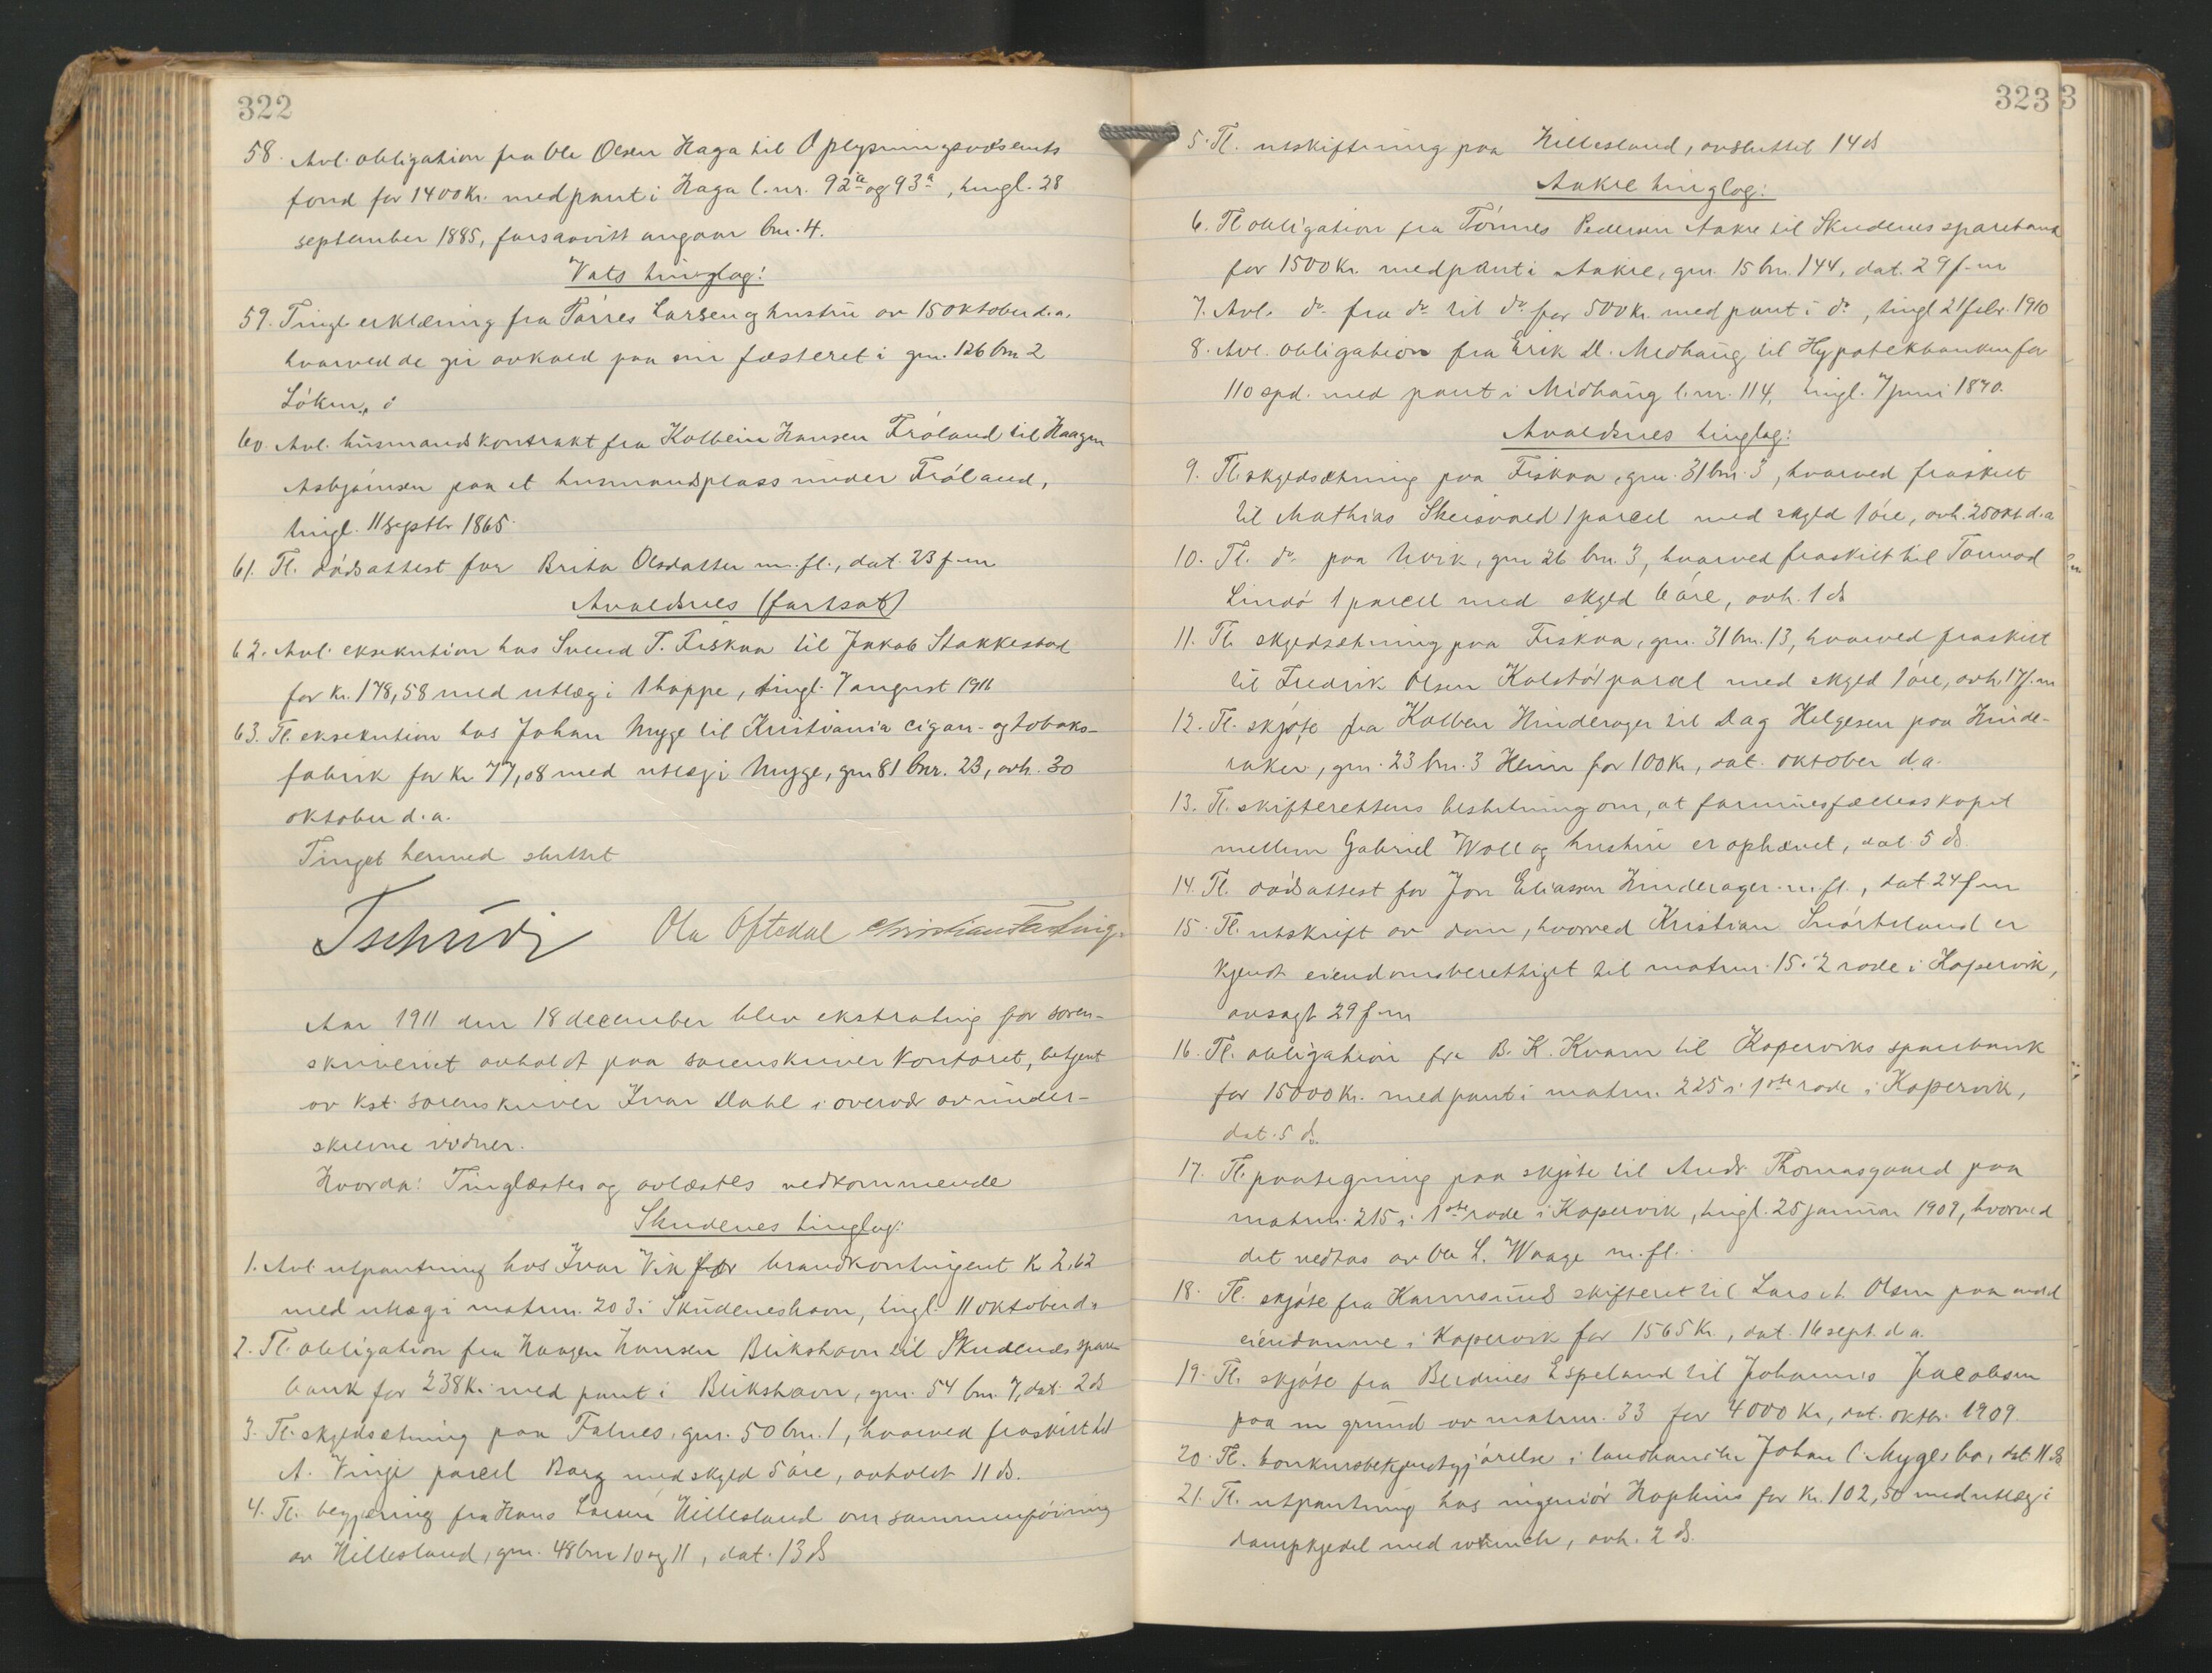 322
58. Avl. obligation fra Ole Olsen Haga til Oplysningsvæsenets
fond for 1400 Kr. med pant i Haga l.nr. 92a og 93a, tingl. 28
september 1885, forsaavitt angaar bnr. 4.
Vats tinglag:
59. Tingl. erklæring fra Tørres Larsen og hustru av 15 oktober d.a.
hvorved de gir avkald paa sin fæsteret i gnr. 126 bnr 2
Løken,
60. Avl. husmandskontrakt fra Kolbein Hansen Frøland til Haagen
Asbjørnsen paa et husmandsplass under Frøland,
tingl. 11 septbr 1865.
61. Tl. dødsattest for Brita Olsdatter m. fl., dat. 23 f-m
Avaldsnes (fortsat)
62. Avl. eksekution hos Svend T. Fiskaa til Jakob Stakkestad
for kr. 178,58 med utlæg i 1 hoppe, tingl. 7 august 1911
63. Tl. eksekution hos Johan Mygge til Kristiania cigar- og tobaks-
fabrik for kr 77,08 med utlæg i Mygge, gnr 81 bnr. 23, avh. 30
oktober d.a.
Tinget hermed sluttet
Tschudi Ola Oftedal
Aar 1911 den 18 december blev ekstrating for soren-
skriveriet avholdt paa sorenskriverkontoret, betjent
av kst. sorenskriver Ivar Dahl i overvær av under-
skrevne vidner.
Hvorda: Tinglæstes og avlæstes vedkommende
Skudenes tinglag:
1. Avl. utpantning hos Ivar Vik for brandkontingent k 2,62
med utlæg i matrnr. 203 i Skudeneshavn, tingl. 11 oktober d.a
2. Tl. obligation fra Haagen Hansen Blikshavn til Skudenes spare-
bank for 238 Kr. med pant i Blikshavn, gnr. 54 bnr. 7, dat. 2 ds
3. Tl. skyldsætning paa Falnes, gnr. 50 bnr. 1, hvorved fraskilt til
A. Vinje parcel Borg med skyld 5 øre, avholdt 11 ds.
4. Tl. begjæring fra Hans Larsen Hillesland om sammenføining
av Hillesland, gnr. 48 bnr 10 og 11, dat. 13 ds
323
3
5. Tl. utskiftning paa Hillesland, avsluttet 14 ds
Aakre tinglag:
6. Tl obligation fra Tønnes Pedersen Aakre til Skudenes sparebank
for 1500 Kr. med pant i Aakre, gnr. 15 bnr. 144, dat. 29 f-m
7. Avl. do fra do til do for 500 kr. med pant i do, tingl 21 febr. 1910
8. Avl. obligation fra Erik Medhaug til Hypotekbanken for
110 spd. med pant i Midhaug l.nr. 114, tingl. 7 juni 1870.
Avaldsnes tinglag:
9. Tl. skyldsætning paa Fiskaa, gnr. 31 bnr. 3, hvorved fraskilt
til Mathias Skeisvoed 1 parcel med skyld 1 øre, avh. 25 okt d.a
10. Tl. do paa Utvik, gnr 26 bnr. 3, hvorved fraskilt til Tormod
Lindø 1 parcel med skyld 6 øre, avh. 1 ds
11. Tl. skyldsætning paa Fiskaa, gnr. 31 bnr. 13, hvorved fraskilt
til Fredrik Olsen Kolstø 1 parcel med skyld 1 øre, avh. 17 f.m
12. Tl. skjøte fra Kolben Hinderager til Dag Helgesen paa Hinde-
raker, gnr. 23 bnr. 3 Heim for 100 Kr, dat. oktober d.a.
13. Tl. skifterettens beslutning om, at formuesfællesskapet
mellem Gabriel Woll og hustru er ophævet, dat. 5 ds.
14. Tl. dødsattest for Jon Eliassen Hinderager m. fl., dat. 24 f-m
15. Tl. utskrift av dom, hvorved Kristian Snørteland er
kjendt eiendomsberettiget til matrnr. 15 i 2 rode i Kopervik,
avsagt 29 f-m
16. Tl. obligation fra B. K. Kvam til Koperviks sparebank
for 15000 Kr. med pant i matrnr. 225 i 1ste rode i Kopervik,
dat. 5 ds.
17. Tl. paategning paa skjøte til Andr. Thomasgaard paa
matrnr. 215 i 1ste rode i Kopervik, tingl. 25 januar 1909, hvorved
det vedtas av Ole L. Waage m. fl.
18. Tl. skjøte fra Karmsund skifteret til Lars A. Olsen paa
eiendomme i Kopervik for 1565 Kr, dat. 16 sept. d a.
19. Tl. skjøte fra Berdines Espeland til Johannes Jacobsen
paa en grund av matrnr. 33 for 4000 Kr, dat. oktbr. 1909.
20. Tl. konkursbekjendtgjørelse i landhandler Johan C. Mygges bo, dat. 11 ds
21. Tl. utpantning hos ingeniør Hopkins for Kr. 102,50 med utlæg i
dampkjedel med winch, avh. 2 ds.